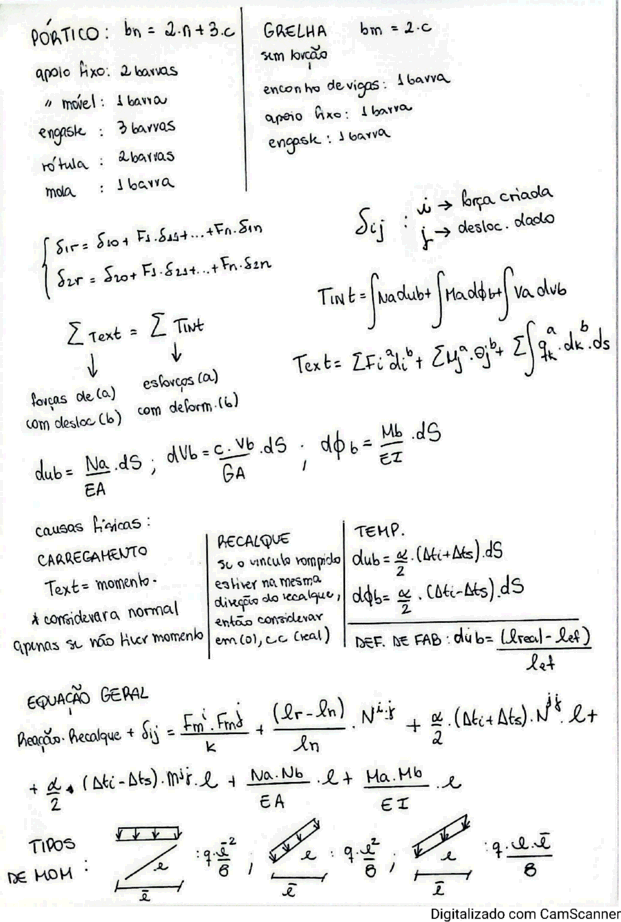 PÓRTICO: bn = 2.n+3.c
apoio fixo: 2 barras
" móvel: 1 barra
engaste : 3 barras
rótula : 2 barras
mola : 1 barra
GRELHA bm = 2.c
sem torção
encontro de vigas: 1 barra
apoio fixo: 1 barra
engaste: 1 barra
δ1r = δ10 + F1.δ11+...+Fn.δ1n
δ2r = δ20 + F1.δ21+...+Fn.δ2n
δij : i → força criada
j → desloc. dado
TINt = ∫Nadub + ∫Madϕb + ∫Va dvb
Σ Text = Σ TINt
↓ ↓
forças de (a) esforços (a)
com desloc (b) com deform. (b)
Text = ΣFiᵃdiᵇ + ΣMjᵃ.θjᵇ + Σ∫qkᵃ.dkᵇ.ds
dub = Na/EA .dS ; dVb = c.Vb/GA .dS ; dϕb = Mb/EI .dS
causas físicas:
CARREGAMENTO
Text = momento.
* considerara normal
apenas se não tiver momento
RECALQUE
se o vinculo rompido
estiver na mesma
direção do recalque,
então considerar
em (0), c.c (real)
TEMP.
dub = α/2 .(Δti+Δts).dS
dϕb = α/2 .(Δti-Δts).dS
DEF. DE FAB : dub = (lreal - lef)/lef
EQUAÇÃO GERAL
Reação.Recalque + δij = Fmⁱ.Fmʲ/k + (lr-ln)/ln .N + α/2 .(Δti+Δts).N.l+
+ α/2 . (Δti-Δts).m.l + Na.Nb/EA .l + Ma.Mb/EI .l
TIPOS
DE MOM : l l̄ : q.l̄²/8 ; l l̄ : q.l²/8 ; l l̄ : q.l.l̄/8
Digitalizado com CamScanner